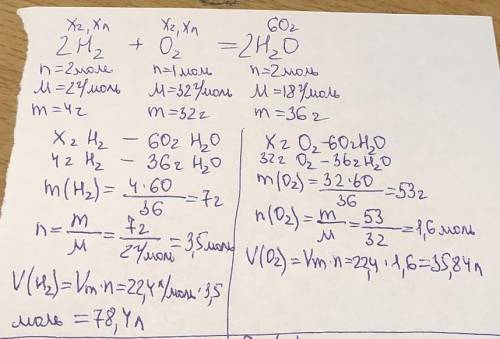 xг, xл xг, xл 60г
2H₂ + O₂ = 2H₂O
n=2моле n=1моль n=2моль
M=2г/моль M=32г/моль M=18г/моль
m=4г m=32г m=36г
x г H₂ – 60г H₂O
4г H₂ – 36г H₂O
m(H₂)=4·60/36=7г
n=m/M=7г/2г/моль=3,5моль
V(H₂)=Vm·n=22,4л/моль·3,5
моль=78,4л
x г O₂-60гH₂O
32г O₂-36гH₂O
m(O₂)=32·60/36=53г
n(O₂)=m/M=53/32=1,6моль
V(O₂)=Vm·n=22,4·1,6=35,84л